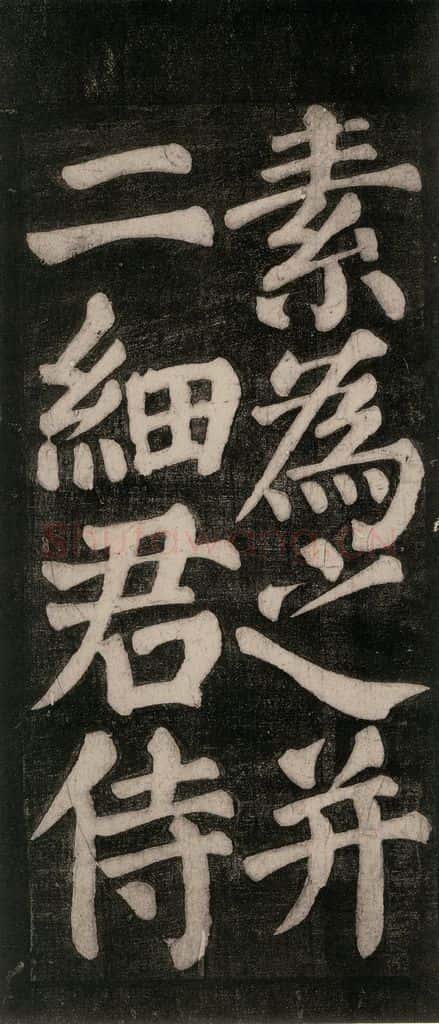 素為之并
二細君侍